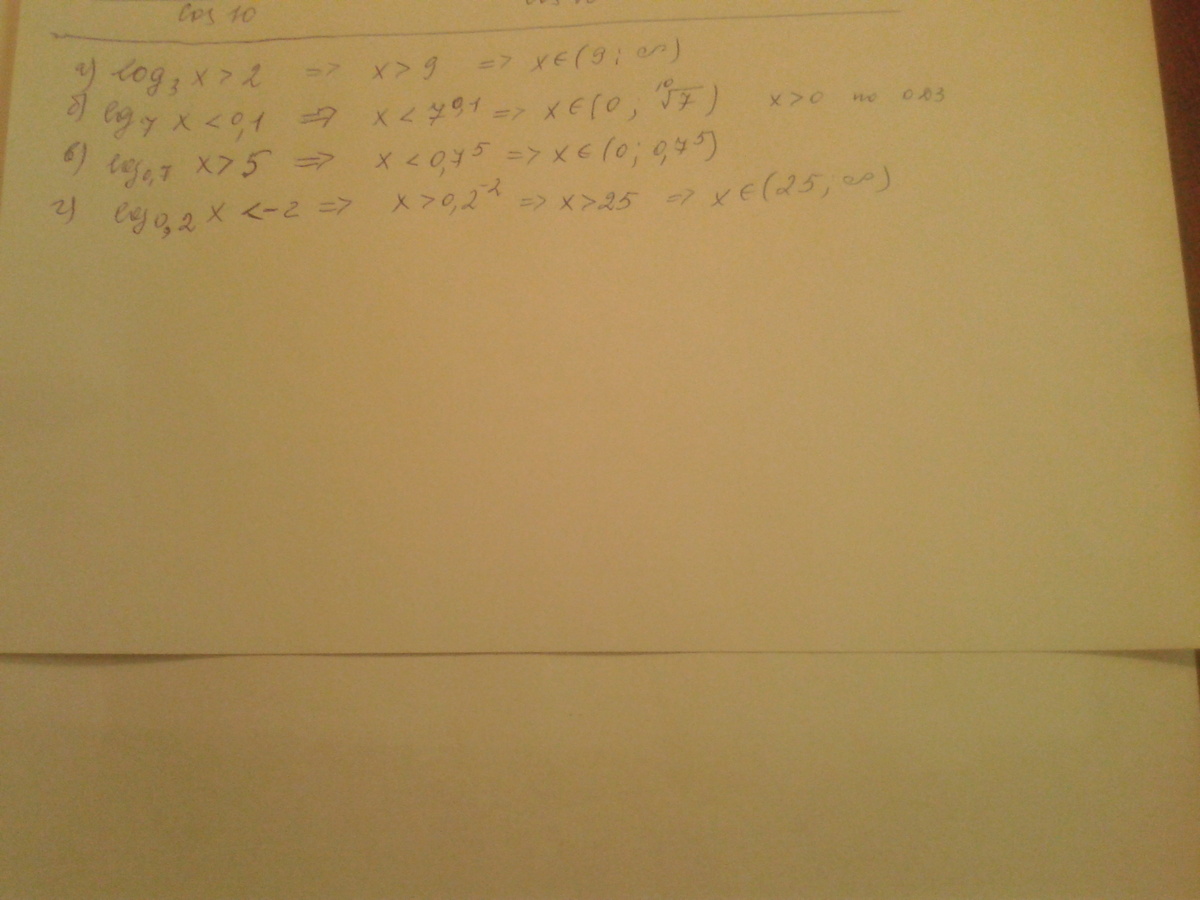 cos 10
а) log₃ x > 2 => x > 9 => x ∈ (9; ∞)
б) log₇ x < 0,1 => x < 7^0,1 => x ∈ (0; ¹⁰√7) x > 0 по ОДЗ
в) log₀,₇ x > 5 => x < 0,7⁵ => x ∈ (0; 0,7⁵)
г) log₀,₂ x < -2 => x > 0,2⁻² => x > 25 => x ∈ (25; ∞)